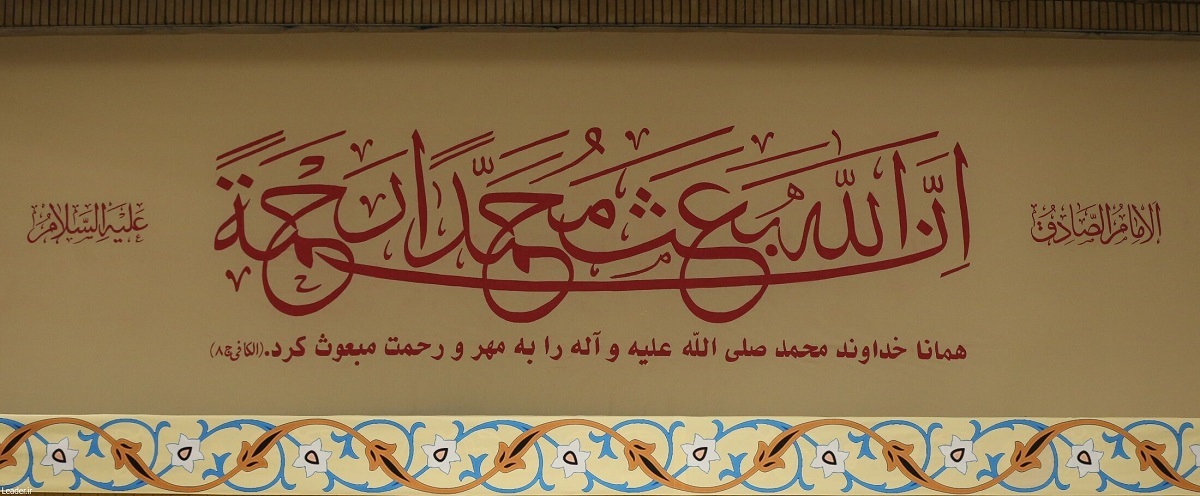 الإمام الصّادق
إنّ الله بعث محمّدًا رحمةً
عليه السّلام
همانا خداوند محمد صلی الله علیه و آله را به مهر و رحمت مبعوث کرد.(الکافی ج۸)
Leader.ir